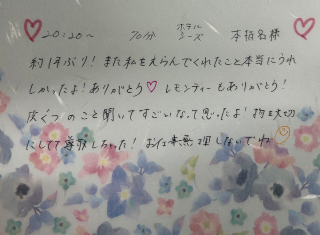 20:20~ 70分 ホテルシーズ 本指名様
約1年ぶり!また私をえらんでくれたこと本当にうれ
しかったよ!ありがとう♡レモンティーもありがとう!
皮ぐつのこと聞いてすごいなって思ったよ!物を大切
にしてて尊敬しちゃった!お仕事無理しないでね